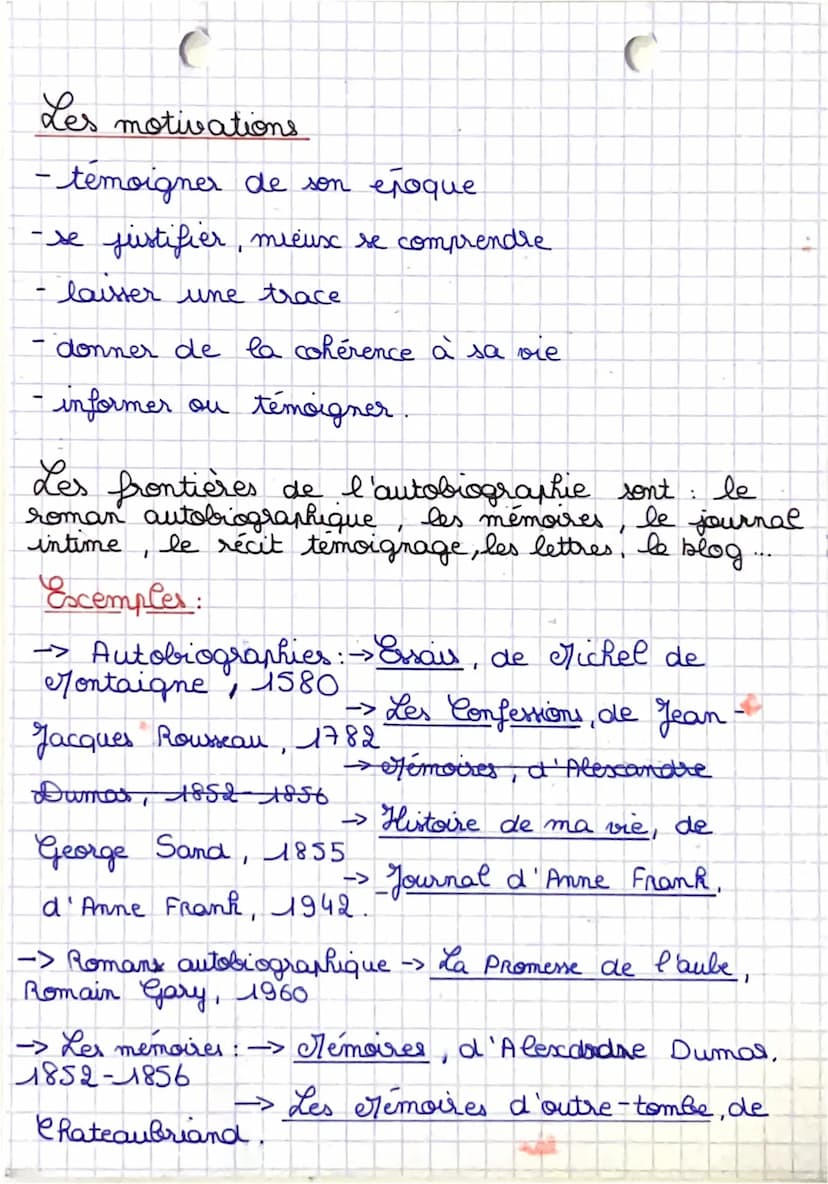 Les motivations
- témoigner de son époque
- se justifier, mieux se comprendre
- laisser une trace
- donner de la cohérence à sa vie
- informer ou témoigner.
Les frontières de l'autobiographie sont : le
roman autobiographique, les mémoires, le journal
intime, le récit témoignage, les lettres, le blog...
Exemples :
-> Autobiographies : -> Essais, de Michel de
Montaigne, 1580
-> Les Confessions, de Jean-
Jacques Rousseau, 1782
-> Mémoires, d'Alexandre
Dumas, 1852-1856
-> Histoire de ma vie, de
George Sand, 1855
-> Journal d'Anne Frank,
d'Anne Frank, 1942.
-> Romans autobiographique -> La Promesse de l'aube,
Romain Gary, 1960
-> Les mémoires : -> Mémoires, d'Alexdndne Dumas,
1852-1856
-> Les Mémoires d'outre-tombe, de
Chateaubriand.